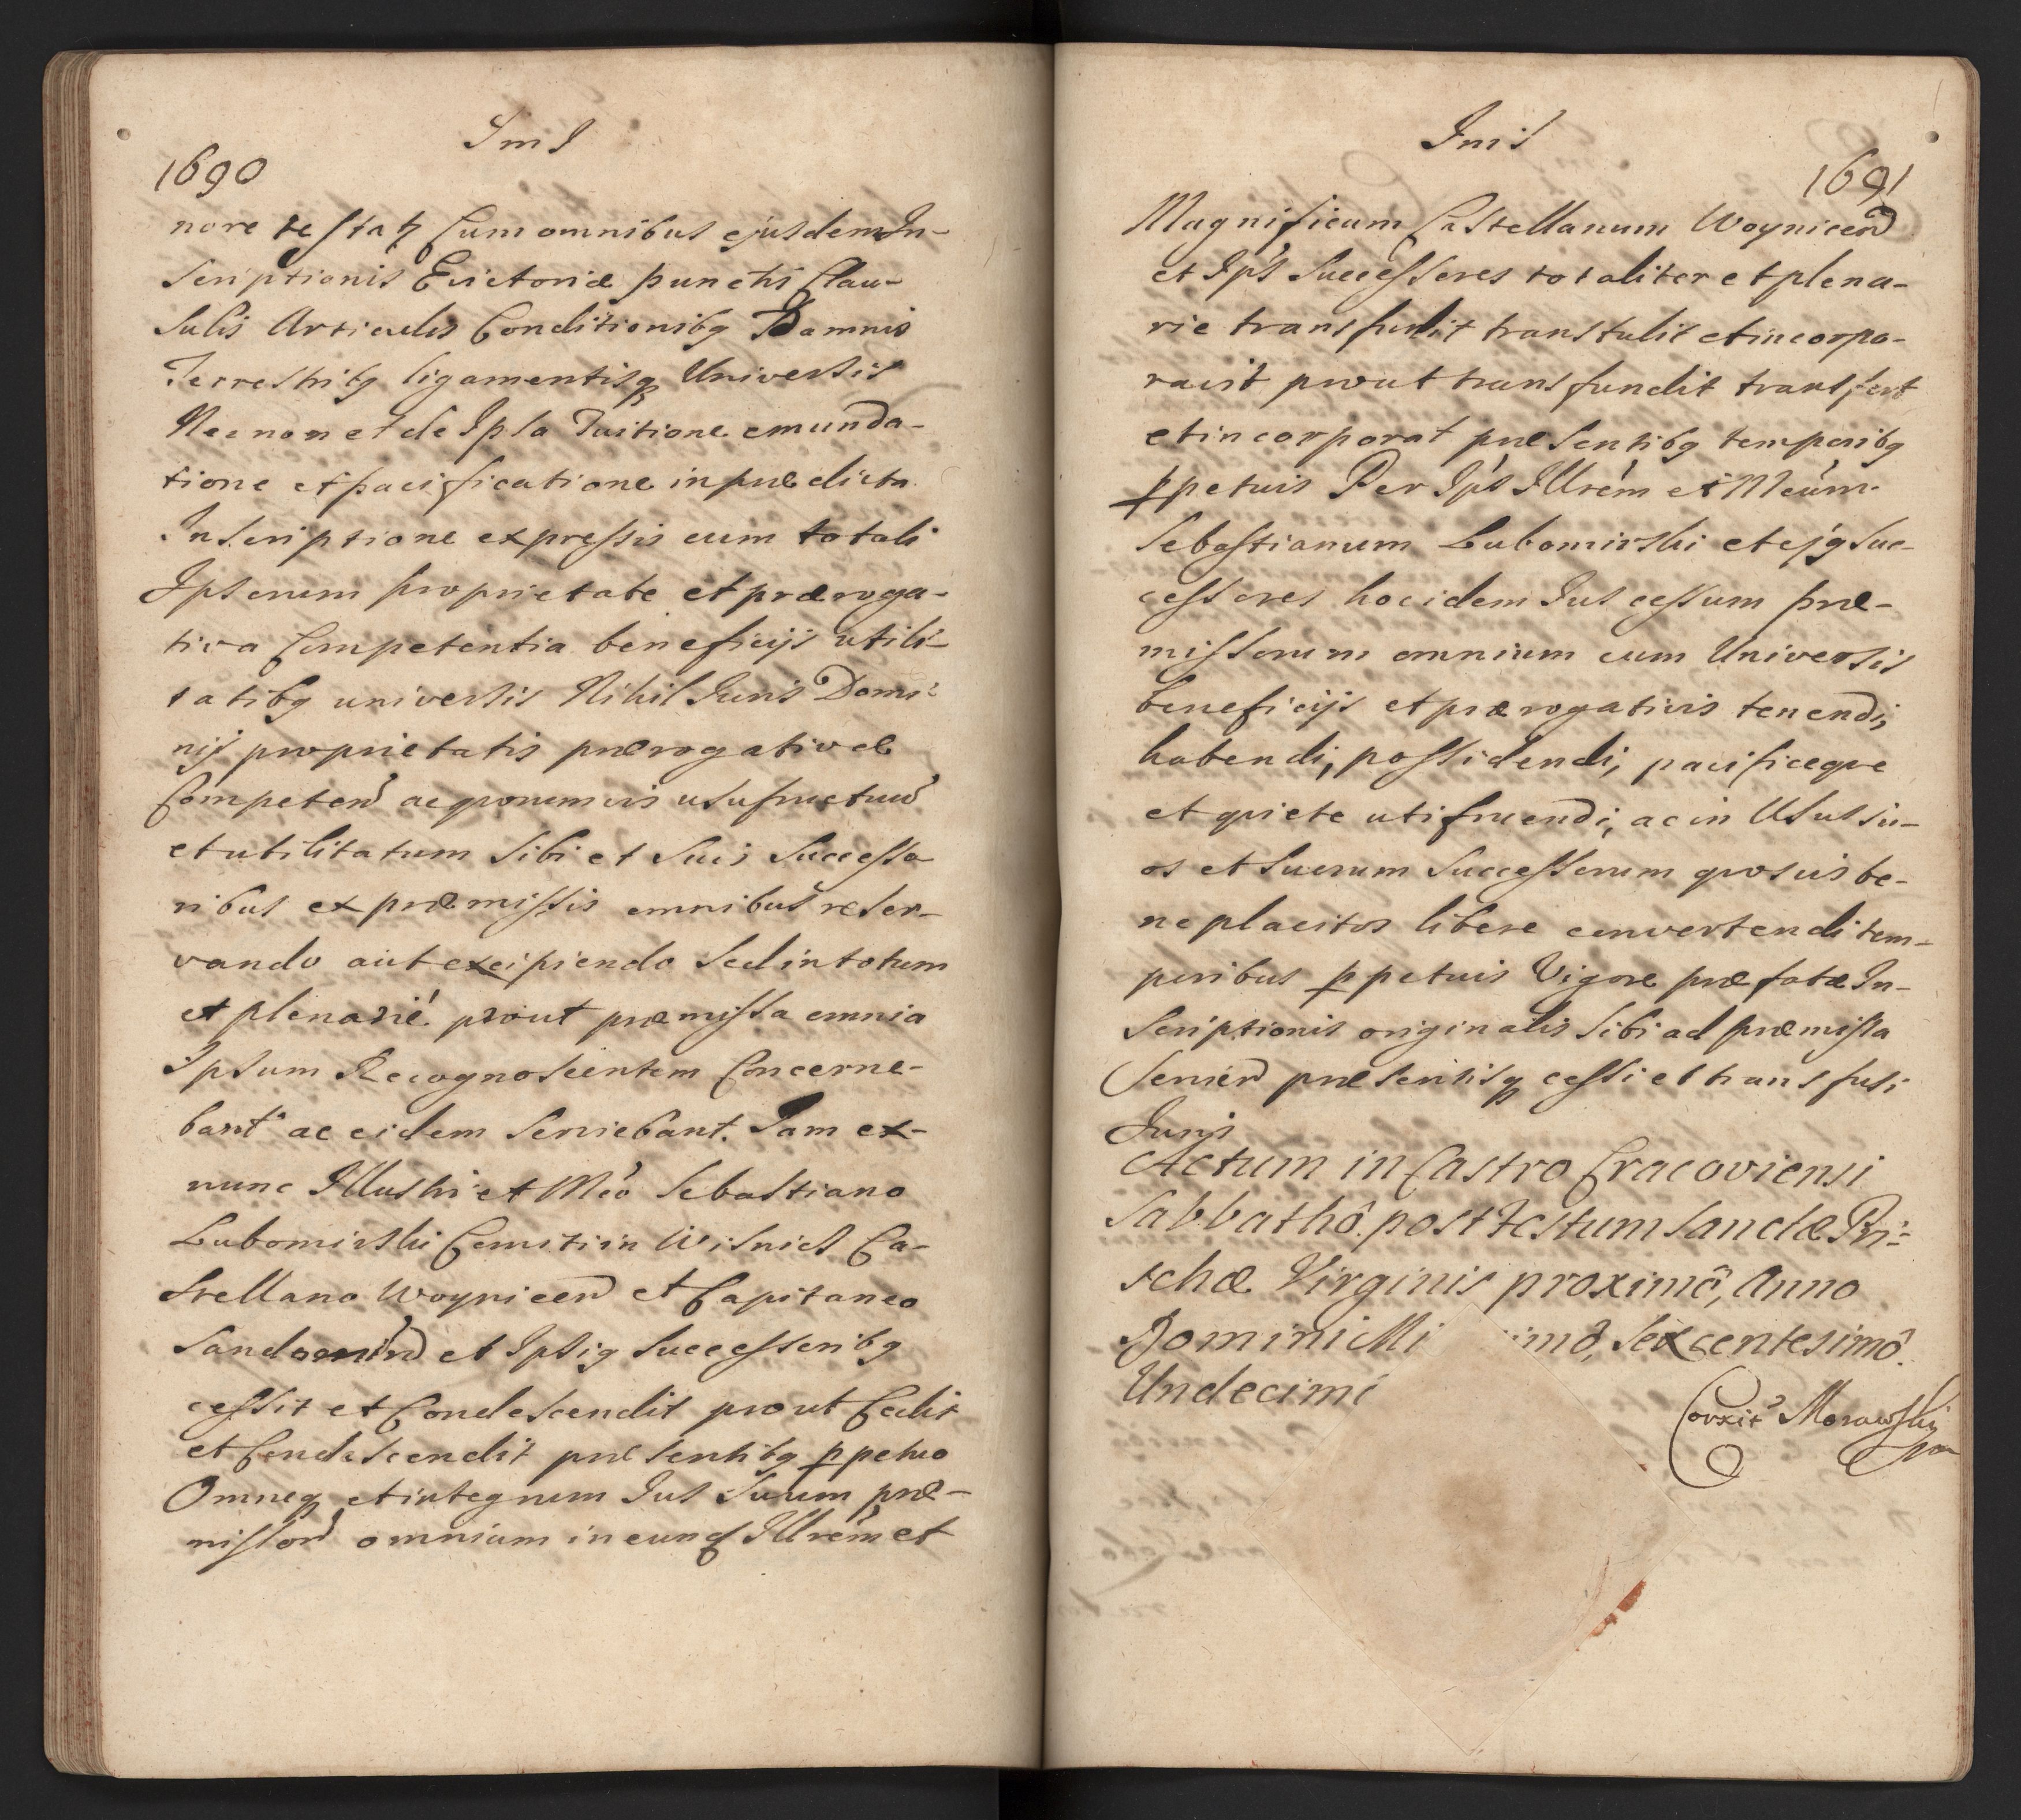 1690
nore testatq Cum omnibus ejusdem In-
scriptionis Evictoriæ punctis Clau-
sulis Articulis Conditionibq Damnis
Terrestribq ligamentisq Universis
Nec non et de Ipsa Tuitione emunda-
tione et pacificatione in prædicta
Inscriptione expressis cum totali
Ipsorum proprietate et præroga-
tiva Competentia beneficijs utili-
tatibq universis Nihil Juris Domi-
nij proprietatis prærogativæ
Competen ac quorumvis usufructuu
et utilitatum Sibi et Suis Successo
ribus ex præmissis omnibus reser-
vando aut excipiendo Sed in totum
et plenarié prout præmissa omnia
Ipsum Recognoscentem Concerne-
bant ac eidem Serviebant. Jam ex-
nunc Illustri et Mco Sebastiano
Lubomirski Comiti in Wisnicz Ca-
stellano Woynicen et Capitaneo
et Ipsiq Successoribq
cessit et Condescendit prout Cedit
et Condescendit præsentibq ppetuo
Omneq et integrum Jus Suum præ-
missor omnium in eund Illrem et
Jmis
1691
Magnificum Castellanum Woynicen
et Ips Successores totaliter et plena-
rie transfudit transtulit et incorpo-
ravit prout transfundit transfert
et incorporat præsentibq temporibq
ppetuis Per Ips Illrem et Mcum
Sebastianum Lubomirski et ejq Suc-
cessores hoc idem Jus cessum præ-
missorum omnium cum Universis
beneficijs et prærogativis tenendi,
habendi, possidendi, pacificeqve
et qviete utifruendi, ac in Usus su-
os et Suorum Successorum qvosvis be-
neplacitos libere convertendi tem-
poribus ppetuis Vigore præfatæ In-
scriptionis originalis Sibi ad præmissa
Servien præsentisq cessi et transfusi
Juris
Actum in Castro Cracoviensi
Sabbathô post Festum Sanctæ Pri-
schæ Virginis proximô, Anno
Domini Mi imô, Sexcentesimô.
Undecimô
Corxit Morawski